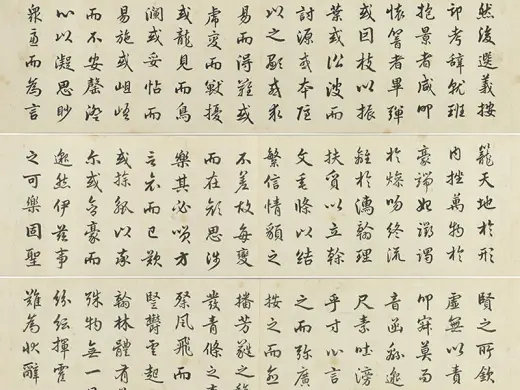 然後選義按
部考辭就班
抱景者咸叩
懷響者畢彈
或因枝以振
葉或沿波而
討源或本隱
以之顯或求
易而得難或
虎變而獸擾
或龍見而鳥
瀾或妥帖而
易施或岨峿
而不安罄澄
心以凝思眇
眾慮而為言
籠天地於形
內挫萬物於
豪端始躑躅
於燥吻終流
離於濡翰理
扶質以立幹
文垂條以結
繁信情貌之
不差故每變
而在顏思涉
樂其必笑方
言哀而已歎
或操觚以率
爾或含豪而
邈然伊茲事
之可樂固聖
賢之所欽
虛無以責
叩寂莫而
音函綿邈
尺素吐滂
乎寸心言
之而彌廣
按之而愈
播芳蕤之
發青條之
粲風飛而
豎鬱雲起
翰林體有
殊物無一
紛紜揮霍
難為狀辭